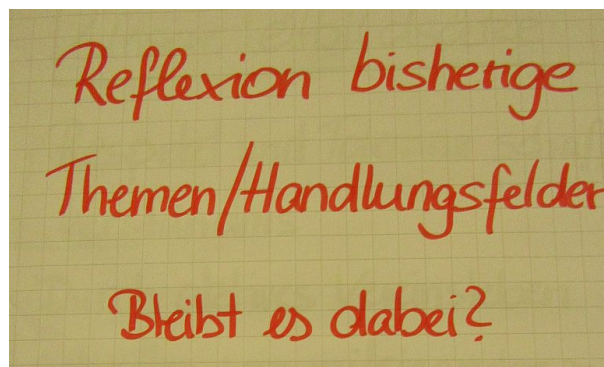 Reflexion bisherige
Themen/Handlungsfelder
Bleibt es dabei?